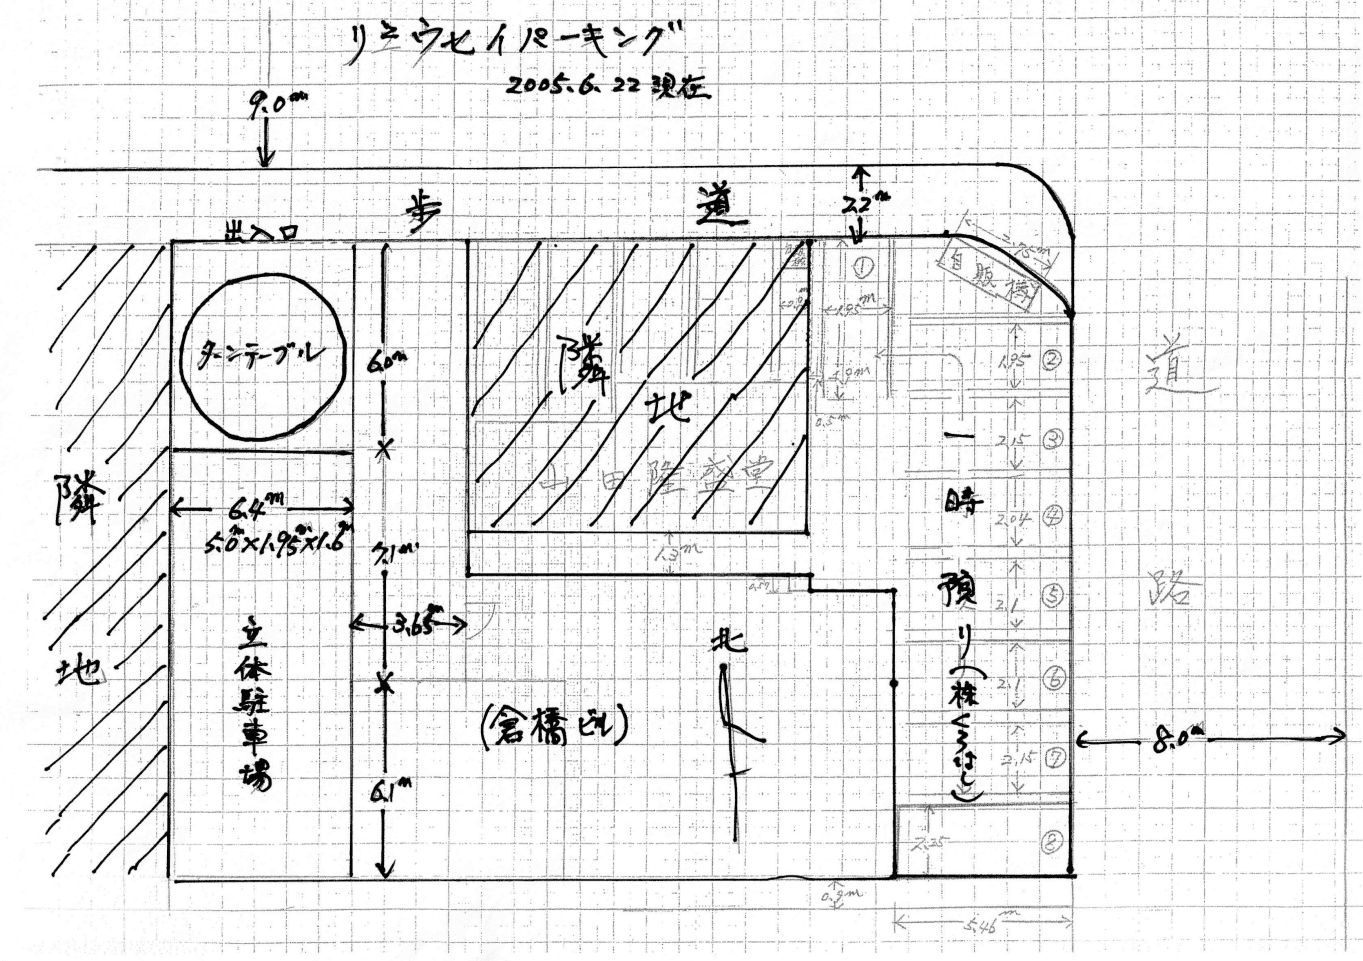 リュウセイパーキング
2005.6.22 現在
9.0m
歩道
2.2m
出入口
ターンテーブル
6.0m
隣地
山田隆盛堂
自販機
2.75m
①
1.95m
0.5m
1.95
②
2.15
③
2.04
④
2.1
⑤
2.1
⑥
2.15
⑦
2.35
⑧
道路
隣地
6.4m
5.0m×1.95m×1.6m
7.1m
1.3m
3.65m
立体駐車場
(倉橋ビル)
北
一時預り(株くろばし)
8.0m
6.1m
5.46m